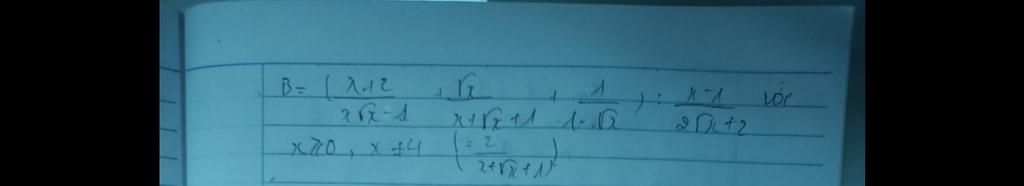 B = ( \frac{x+2}{x\sqrt{x}-1} + \frac{\sqrt{x}}{x+\sqrt{x}+1} + \frac{1}{1-\sqrt{x}} ) : \frac{x-1}{2\sqrt{x}+2} với
x ≥ 0, x ≠ 4 ( = \frac{2}{x+\sqrt{x}+1} )